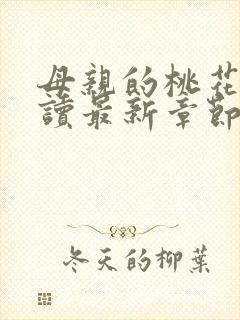 母親的桃花
讀最新章節
冬天的柳葉